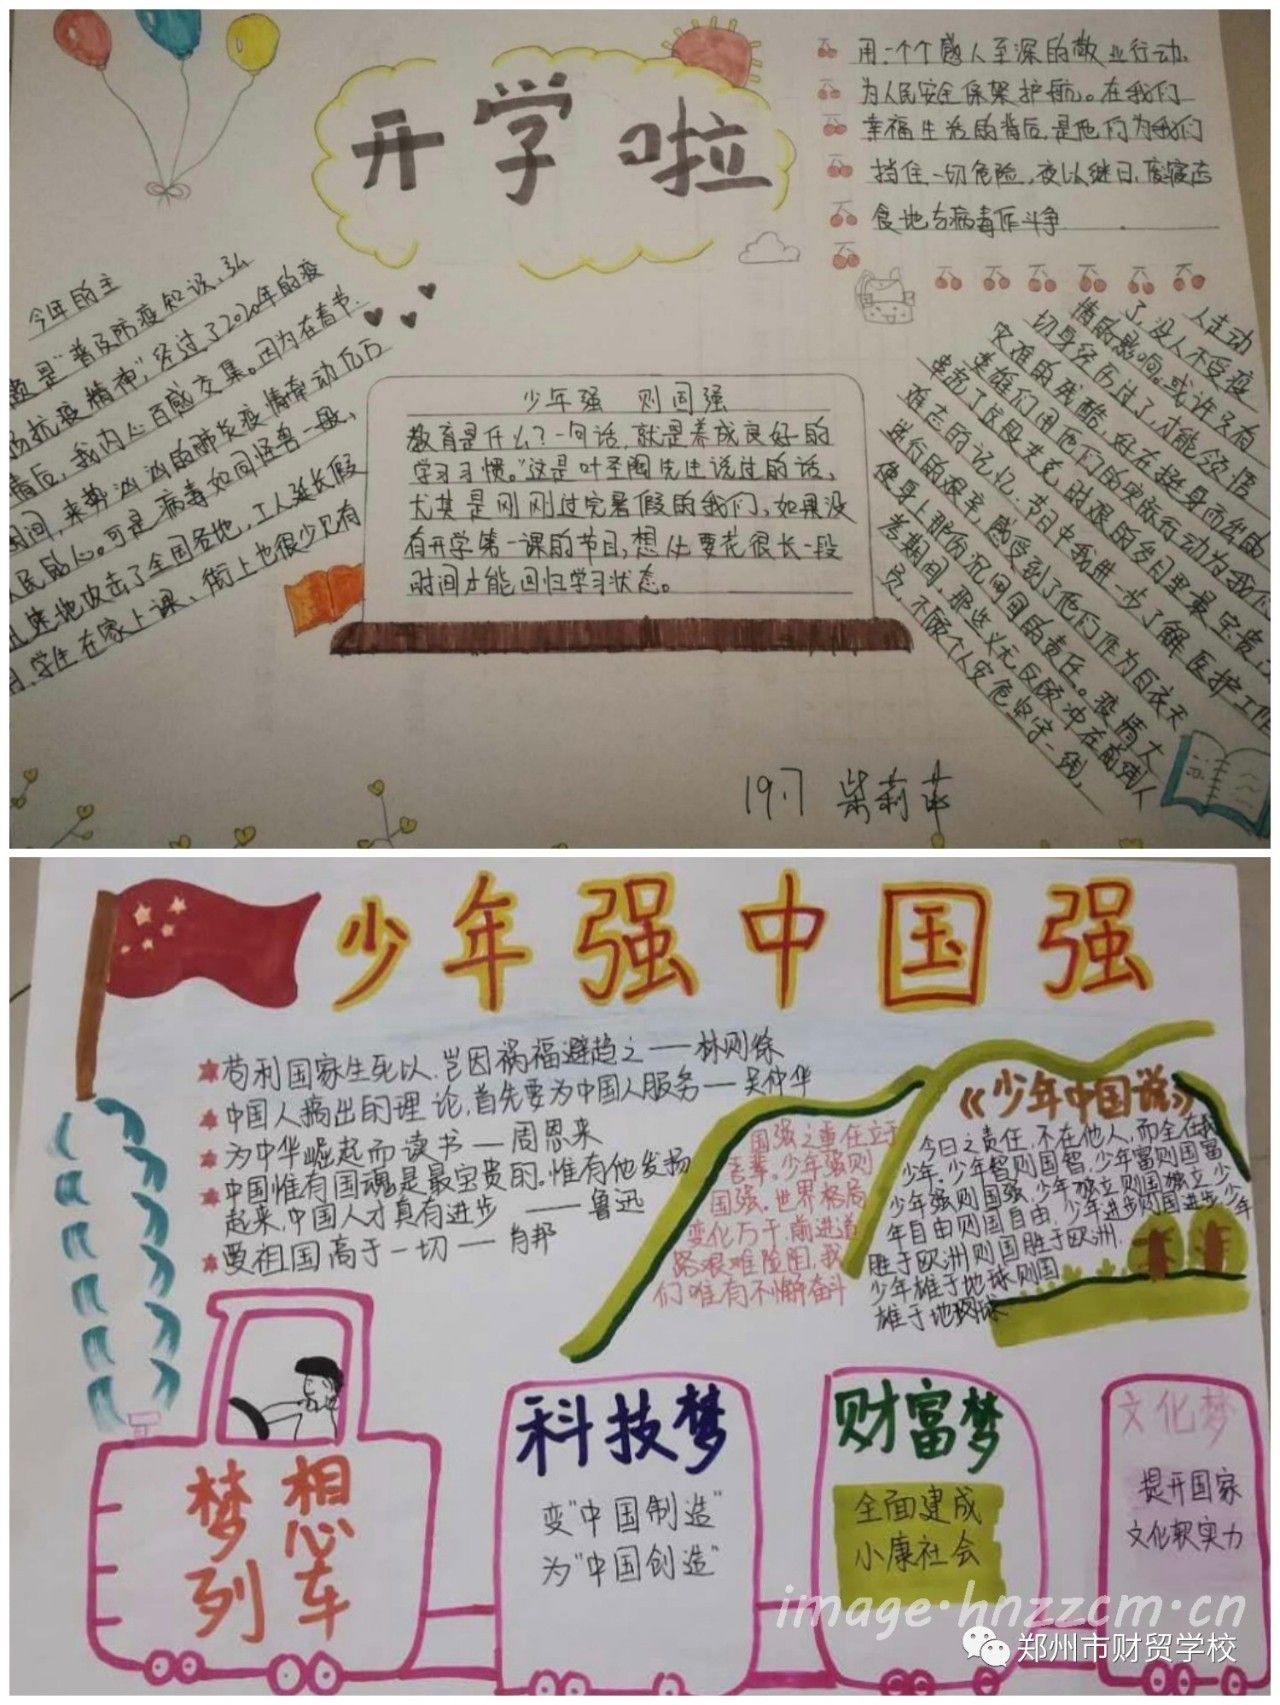 开学啦
用一个个感人至深的敬业行动、
为人民安全保架护航。在我们
幸福生活的背后,是他们为我们
挡住一切危险,夜以继日,废寝忘
食地与病毒作斗争
今年的主
题是"普及防疫知识、弘
扬抗疫精神",经过了2020年的疫
情后,我内心百感交集。因为在春节
期间,来势汹汹的肺炎疫情牵动亿万
人民的心。可是病毒如同怪兽一般,
迅速地攻击了全国各地,工人延长假
日,学生在家上课、街上也很少见有
少年强 则国强
教育是什么?一句话,就是养成良好的
学习习惯。"这是叶圣陶先生说过的话,
尤其是刚刚过完暑假的我们,如果没
有开学第一课的节目,想必要花很长一段
时间才能回归学习状态。
人走动
了,没人不受疫
情的影响。或许只有
切身经历过了,才能领悟
灾难的残酷,好在挺身而出的
英雄们用他们的实际行动为我们
难忘的记忆,节目中我进一步了解医护工作
进行的艰辛,感受到了他们作为白衣天
使身上那份沉甸甸的责任。疫情大
考期间,那些义无反顾冲在前线人
员,不顾个人安危坚守一线,
19.7
少年强中国强
苟利国家生死以,岂因祸福避趋之——林则徐
中国人搞出的理论,首先要为中国人服务—吴仲华
为中华崛起而读书—周恩来
中国惟有国魂是最宝贵的,惟有他发扬
起来,中国人才真有进步——鲁迅
爱祖国高于一切—肖邦
国强之重任立于
吾辈。少年强则
国强。世界格局
变化万千,前进道
路艰难险阻,我
们唯有不懈奋斗
《少年中国说》
今日之责任,不在他人,而全在我
少年。少年智则国智,少年富则国富
少年强则国强,少年独立则国独立,少
年自由则国自由,少年进步则国进步,少年
胜于欧洲则国胜于欧洲,
少年雄于地球则国
雄于地球
梦想
列车
科技梦
变"中国制造"
为"中国创造"
财富梦
全面建成
小康社会
文化梦
提升国家
文化软实力
image.hnzzcm.cn
郑州市财贸学校